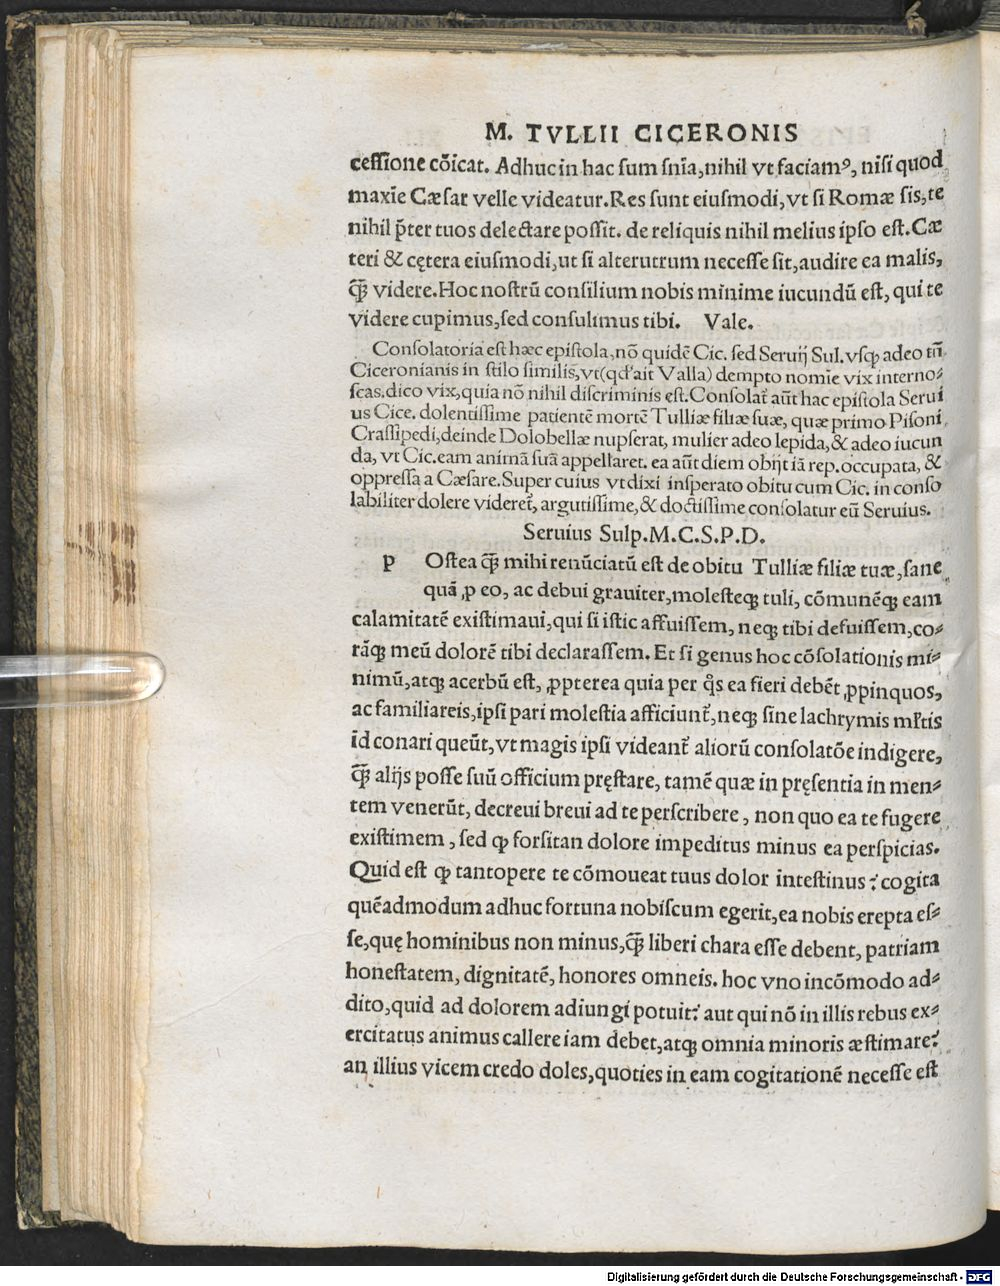 M. TVLLII CICERONIS
cessione cōicat. Adhuc in hac sum snīa, nihil vt faciamꝰ, nisi quod
maxīe Cæsar velle videatur. Res sunt eiusmodi, vt si Romæ sis, te
nihil p̄ter tuos delectare possit. de reliquis nihil melius ipso est. Cæ
teri & cętera eiusmodi, ut si alterutrum necesse sit, audire ea malis,
q̄ꝫ videre. Hoc nostrū consilium nobis minime iucundū est, qui te
videre cupimus, sed consulimus tibi. Vale.
Consolatoria est hæc epistola, nō quidē Cic. sed Seruij Sul. vsqꝫ adeo tn̄
Ciceronianis in stilo similis, vt (qd' ait Valla) dempto nomīe vix interno⸗
scas. dico vix, quia nō nihil discriminis est. Consolat᷑ aūt hac epistola Serui
us Cice. dolentissime patientē mortē Tulliæ filiæ suæ, quæ primo Pisoni
Crassipedi, deinde Dolobellæ nupserat, mulier adeo lepida, & adeo iucun
da, vt Cic. eam animā suā appellaret. ea aūt diem obijt iā rep. occupata, &
oppressa a Cæsare. Super cuius vt dixi insperato obitu cum Cic. in conso
labiliter dolere videret᷑, argutissime, & doctissime consolatur eū Seruius.
Seruius Sulp. M. C. S. P. D.
P Ostea q̄ꝫ mihi renūciatū est de obitu Tulliæ filiæ tuæ, sane
quā ꝓ eo, ac debui grauiter, molesteqꝫ tuli, cōmunēqꝫ eam
calamitatē existimaui, qui si istic affuissem, neqꝫ tibi defuissem, co⸗
rāqꝫ meū dolorē tibi declarassem. Et si genus hoc cōsolationis mi⸗
nimū, atqꝫ acerbū est, ꝓpterea quia per q̊s ea fieri debēt ꝓpinquos,
ac familiareis, ipsi pari molestia afficiunt᷑, neqꝫ sine lachrymis ml̄tis
id conari queūt, vt magis ipsi videant᷑ aliorū consolatōe indigere,
q̄ꝫ alijs posse suū officium pręstare, tamē quæ in pręsentia in men⸗
tem venerūt, decreui breui ad te perscribere, non quo ea te fugere
existimem, sed ꝙ forsitan dolore impeditus minus ea perspicias.
Quid est ꝙ tantopere te cōmoueat tuus dolor intestinus? cogita
quēadmodum adhuc fortuna nobiscum egerit, ea nobis erepta es⸗
se, quę hominibus non minus, q̄ꝫ liberi chara esse debent, patriam
honestatem, dignitatē, honores omneis. hoc vno incōmodo ad⸗
dito, quid ad dolorem adiungi potuit? aut qui nō in illis rebus ex⸗
ercitatus animus callere iam debet, atqꝫ omnia minoris æstimare?
an illius vicem credo doles, quoties in eam cogitationē necesse est
Digitalisierung gefördert durch die Deutsche Forschungsgemeinschaft - DFG